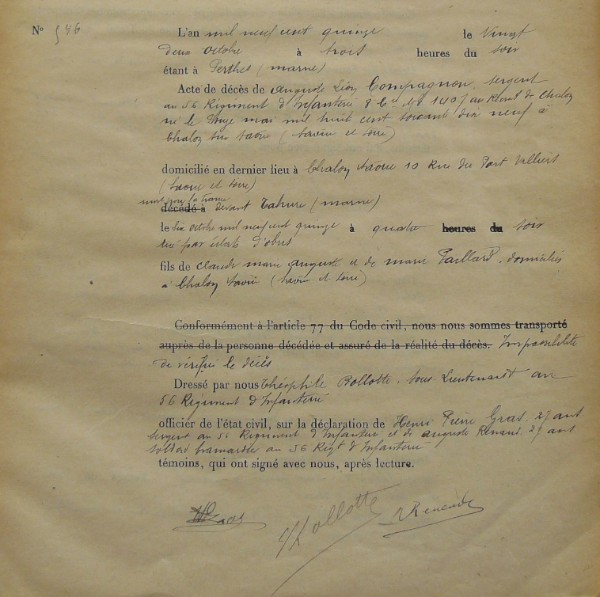 N° 546
L'an mil neuf cent quinze le vingt
deux octobre à trois heures du soir
étant à Perthes (marne)
Acte de décès de Auguste Léon Compagnon, sergent
au 56 Régiment d'Infanterie 8 Cie Ml 1407 au Rlmt de Chalon
né le mai mil huit cent soixante dix neuf à
Chalon sur Saône (Saône et Loire)
domicilié en dernier lieu à Chalon Saône 10 Rue du Port Villiers
(Saône et Loire)
mort pour la France
décédé à devant Tahure (marne)
le six octobre mil neuf cent quinze à quatre heures du soir
tué par éclats d'obus
fils de Claude marie Auguste et de marie Paillard, domiciliés
à Chalon Saône (Saône et Loire)
Conformément à l'article 77 du Code civil, nous nous sommes transporté
auprès de la personne décédée et assuré de la réalité du décès. Impossibilité
de vérifier le décès
Dressé par nous Théophile Bollotte, Sous Lieutenant au
56 Régiment d'Infanterie
officier de l'état civil, sur la déclaration de Henri Pierre Gras, 27 ans
sergent au 56 Régiment d'Infanterie et de Auguste Renaud, 27 ans
soldat brancardier au 56 Régt d'Infanterie
témoins, qui ont signé avec nous, après lecture.
Bollotte